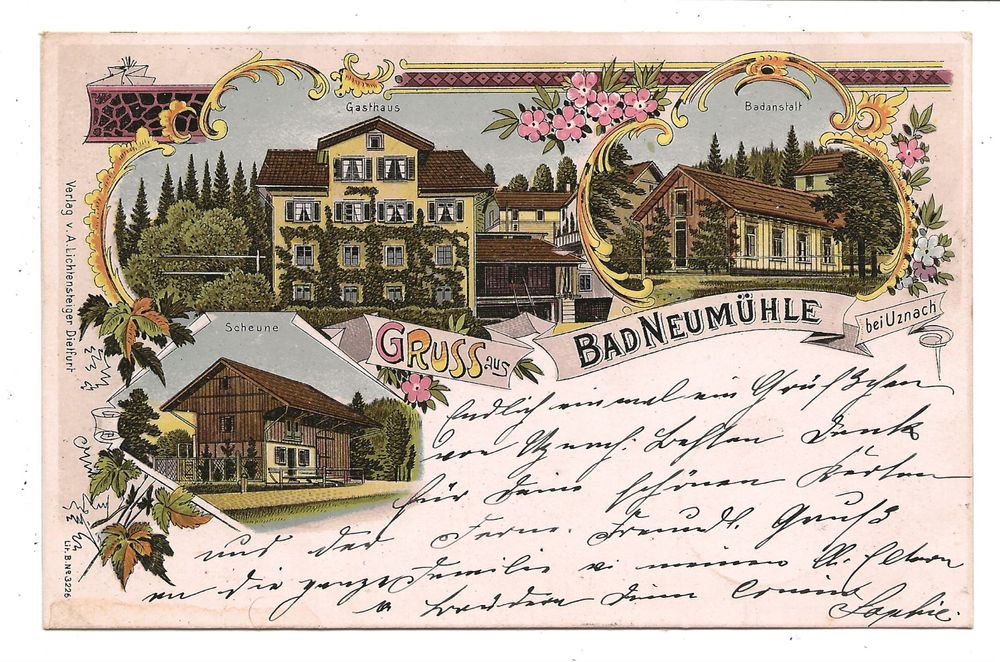 Gasthaus
Badanstalt
Scheune
GRUSS aus
BAD NEUMÜHLE
bei Uznach
Verlag v. A. Lichtensteiger Dietfurt
Lit. B. No 3226
Endlich einmal ein Grüßchen
von Uznach. Besten Dank
für Deine schönen Karten
und der Ferne. Freundl. Gruß
an die ganze Familie v meinen lb. Eltern
u Brüdern Deine
Sophie.